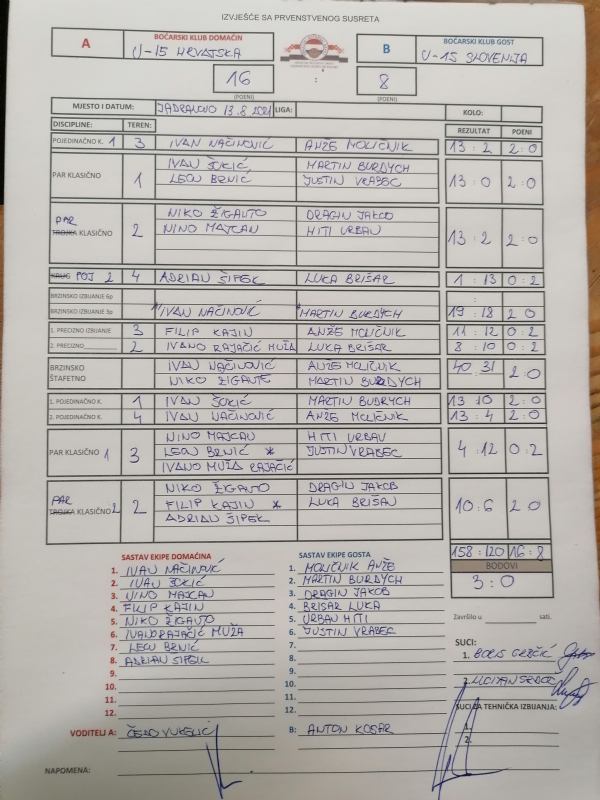 IZVJEŠĆE SA PRVENSTVENOG SUSRETA
A BOĆARSKI KLUB DOMAĆIN B BOĆARSKI KLUB GOST
U-15 HRVATSKA U-15 SLOVENIJA
16 : 8
(POENI) (POENI)
MJESTO I DATUM: JADRANOVO 13.8.2021 LIGA: KOLO:
DISCIPLINE: TEREN: REZULTAT POENI
POJEDINAČNO K. 1 3 IVAN NAČINOVIĆ ANŽE MOLIČNIK 13 : 2 2 : 0
IVAN ŠOKIĆ MARTIN BURDYCH
PAR KLASIČNO 1 LEON BRNIĆ JUSTIN VRABEC 13 : 0 2 : 0
NIKO ŽIGANTO DRAGIN JAKOB
PAR TROJKA KLASIČNO 2 NINO MAJCAN HITI URBAN 13 : 2 2 : 0
KRUG POJ 2 4 ADRIAN ŠIPEK LUKA BRIŠAR 1 : 13 0 : 2
BRZINSKO IZBIJANJE 6p :
BRZINSKO IZBIJANJE 3p IVAN NAČINOVIĆ MARTIN BURDYCH 19 : 18 2 0
1. PRECIZNO IZBIJANJE 3 FILIP KAJIN ANŽE MOLIČNIK 11 : 12 0 : 2
2. PRECIZNO 2 IVANO RAJAČIĆ MUŽA LUKA BRIŠAR 8 : 10 0 : 2
BRZINSKO IVAN NAČINOVIĆ ANŽE MOLIČNIK 40 : 31 2 : 0
ŠTAFETNO NIKO ŽIGANTO MARTIN BURDYCH
1. POJEDINAČNO K. 1 IVAN ŠOKIĆ MARTIN BUDRYCH 13 10 2 : 0
2. POJEDINAČNO K. 4 IVAN NAČINOVIĆ ANŽE MOLIČNIK 13 : 4 2 : 0
NINO MAJCAN HITI URBAN
PAR KLASIČNO 1 3 LEON BRNIĆ * JUSTIN VRABEC 4 : 12 0 : 2
IVANO MUŽA RAJAČIĆ
NIKO ŽIGANTO DRAGIN JAKOB
PAR TROJKA KLASIČNO 2 2 FILIP KAJIN * LUKA BRIŠAR 10 : 6 2 0
ADRIAN ŠIPEK
158 : 120 16 : 8
SASTAV EKIPE DOMAĆINA SASTAV EKIPE GOSTA BODOVI
3 : 0
1. IVAN NAČINOVIĆ 1. MOLIČNIK ANŽE
2. IVAN ŠOKIĆ 2. MARTIN BURDYCH
3. NINO MAJCAN 3. DRAGIN JAKOB
4. FILIP KAJIN 4. BRIŠAR LUKA
5. NIKO ŽIGANTO 5. URBAN HITI Završilo u sati.
6. IVANO RAJAČIĆ MUŽA 6. JUSTIN VRABEC
7. LEON BRNIĆ 7. SUCI:
8. ADRIAN ŠIPEK 8. 1. BORIS
9. 9.
10. 10. 2.
11. 11.
12. 12. SUCI ZA TEHNIČKA IZBIJANJA:
VODITELJ A: ČEDO VUKELIĆ B: ANTON KOSAR 1.
2.
NAPOMENA: